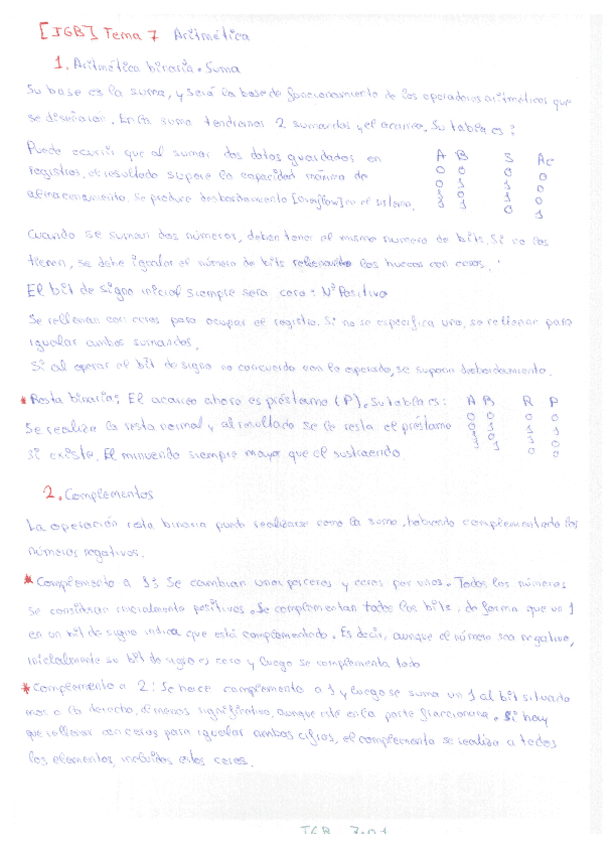 [IGB] Tema 7 Aritmética
1. Aritmética binaria. Suma
Su base es la suma, y será la base de funcionamiento de los operadores aritméticos que
se diseñarán. En la suma tendremos 2 sumandos y el acarreo. Su tabla es:
Puede ocurrir que al sumar dos datos guardados en
registros, el resultado supere la capacidad máxima de
almacenamiento. Se produce desbordamiento [overflow] en el sistema.
A B S Ac
0 0 0 0
0 1 1 0
1 0 1 0
1 1 0 1
Cuando se suman dos números, deben tener el mismo numero de bits. Si no los
tienen, se debe igualar el número de bits rellenando los huecos con ceros.
El bit de signo inicial siempre será cero: Nº Positivo
Se rellenan con ceros para ocupar el registro. Si no se especifica uno, se rellenan para
igualar ambos sumandos.
Si al operar el bit de signo no concuerda con lo operado, se supone desbordamiento.
* Resta binaria: El acarreo ahora es préstamo (P). Su tabla es:
Se realiza la resta normal y al resultado se le resta el préstamo
si existe. El minuendo siempre mayor que el sustraendo.
A B R P
0 0 0 0
0 1 1 1
1 0 1 0
1 1 0 0
2. Complementos
La operación resta binaria puede realizarse como la suma, habiendo complementado los
números negativos.
* Complemento a 1: Se cambian unos por ceros y ceros por unos. Todos los números
se consideran inicialmente positivos. Se complementan todos los bits, de forma que un 1
en un bit de signo indica que está complementado. Es decir, aunque el número sea negativo,
inicialmente su bit de signo es cero y luego se complementa todo
* Complemento a 2: Se hace complemento a 1 y luego se suma un 1 al bit situado
mas a la derecha, el menos significativo, aunque esté en la parte fraccionaria. Si hay
que rellenar con ceros para igualar ambas cifras, el complemento se realiza a todos
los elementos, incluidos estos ceros.